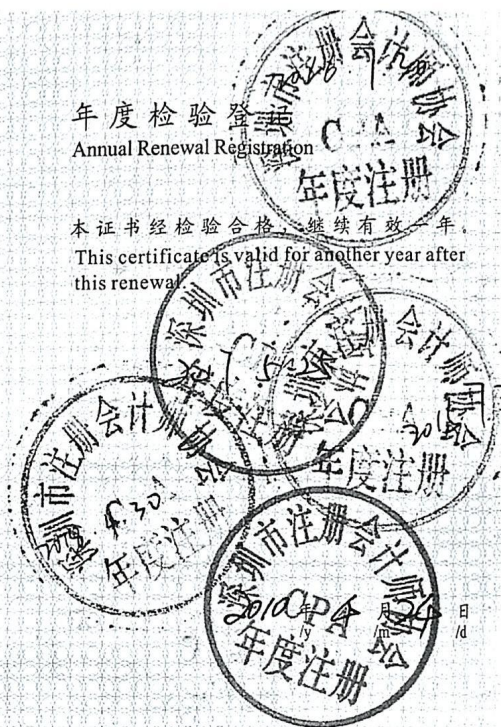 年度检验登记
Annual Renewal Registration
本证书经检验合格，继续有效一年。
This certificate is valid for another year after
this renewal.
深圳市注册会计师协会
CPA
年度注册
深圳市注册会
会计师协会
年度注册
深圳市注册会计师协会
4.30
年度注册
深圳市注册会计师协会
CPA
年度注册
2010年4月24日
/y /m /d